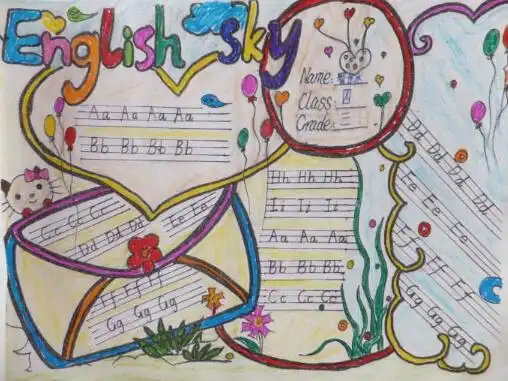 English sky
Name:
Class: 四
Grade: 三
Aa Aa Aa Aa
Bb Bb Bb Bb
Cc Cc Cc
Dd Dd Dd
Ee Ee
Ff Ff Ff
Gg Gg Gg
Hh Hh Hh
Ii Ii Ii
Aa Aa Aa
Bb Bb Bb
Cc Cc Cc
Dd Dd Dd Dd
Ee Ee Ee
Ff Ff Ff
Gg Gg Gg